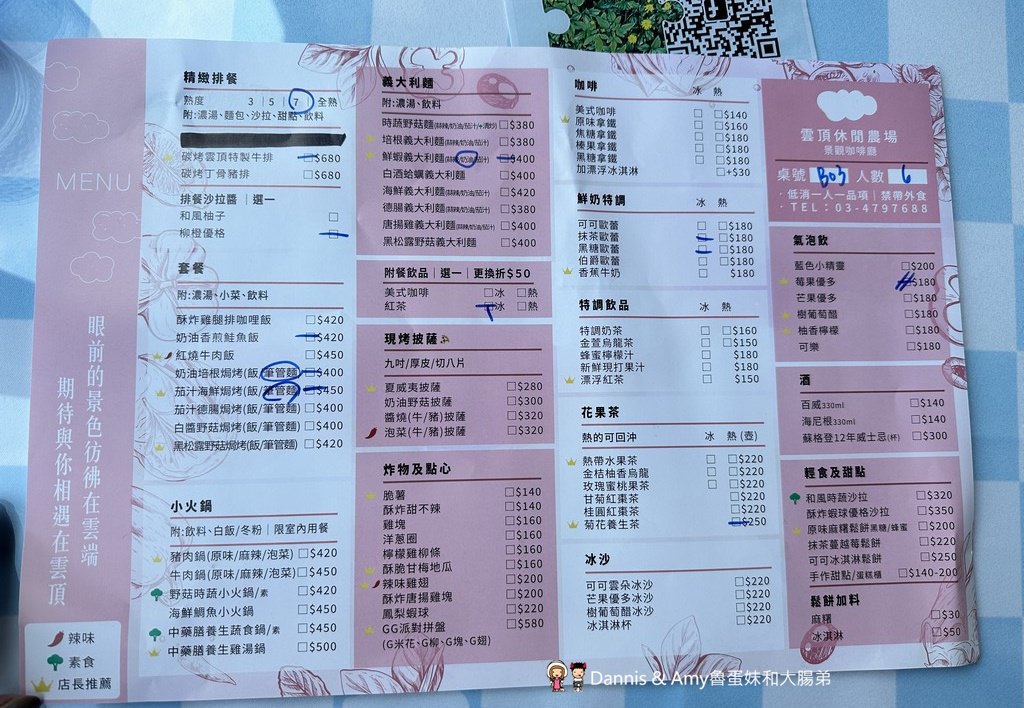 MENU
眼前的景色彷彿在雲端
期待與你相遇在雲頂
辣味
素食
店長推薦
精緻排餐
熟度 3｜5｜7 全熟
附:濃湯、麵包、沙拉、甜點、飲料
碳烤雲頂特製牛排 $680
碳烤丁骨豬排 $680
排餐沙拉醬｜選一
和風柚子
柳橙優格
套餐
附:濃湯、小菜、飲料
酥炸雞腿排咖哩飯 $420
奶油香煎鮭魚飯 $420
紅燒牛肉飯 $450
奶油培根焗烤(飯/筆管麵) $400
茄汁海鮮焗烤(飯/筆管麵) $450
茄汁德腸焗烤(飯/筆管麵) $400
白醬野菇焗烤(飯/筆管麵) $400
黑松露野菇焗烤(飯/筆管麵) $420
小火鍋
附:飲料、白飯/冬粉｜限室內用餐
豬肉鍋(原味/麻辣/泡菜) $420
牛肉鍋(原味/麻辣/泡菜) $450
野菇時蔬小火鍋/素 $420
海鮮鯛魚小火鍋 $450
中藥膳養生蔬食鍋/素 $450
中藥膳養生雞湯鍋 $500
義大利麵
附:濃湯、飲料
時蔬野菇麵(蒜辣/奶油/茄汁/+清炒) $380
培根義大利麵(蒜辣/奶油/茄汁) $380
鮮蝦義大利麵(蒜辣/奶油/茄汁) $400
白酒蛤蠣義大利麵 $400
海鮮義大利麵(蒜辣/奶油/茄汁) $420
德腸義大利麵(蒜辣/奶油/茄汁) $380
唐揚雞義大利麵(蒜辣/奶油/茄汁) $400
黑松露野菇義大利麵 $400
附餐飲品｜選一｜更換折$50
美式咖啡 冰 熱
紅茶 冰 熱
現烤披薩
九吋/厚皮/切八片
夏威夷披薩 $280
奶油野菇披薩 $300
醬燒(牛/豬)披薩 $320
泡菜(牛/豬)披薩 $320
炸物及點心
脆薯 $140
酥炸甜不辣 $140
雞塊 $160
洋蔥圈 $160
檸檬雞柳條 $160
酥脆甘梅地瓜 $160
辣味雞翅 $200
酥炸唐揚雞塊 $200
鳳梨蝦球 $220
GG派對拼盤 $580
(G米花、G柳、G塊、G翅)
咖啡 冰 熱
美式咖啡 $140
原味拿鐵 $160
焦糖拿鐵 $180
榛果拿鐵 $180
黑糖拿鐵 $180
加漂浮冰淇淋 +$30
鮮奶特調 冰 熱
可可歐蕾 $180
抹茶歐蕾 $180
黑糖歐蕾 $180
伯爵歐蕾 $180
香蕉牛奶 $180
特調飲品 冰 熱
特調奶茶 $160
金萱烏龍茶 $150
蜂蜜檸檬汁 $180
新鮮現打果汁 $180
漂浮紅茶 $150
花果茶
熱的可回沖 冰 熱(壺)
熱帶水果茶 $220
金桔柚香烏龍 $220
玫瑰蜜桃果茶 $220
甘菊紅棗茶 $220
桂圓紅棗茶 $220
菊花養生茶 $250
冰沙
可可雲朵冰沙 $220
芒果優多冰沙 $220
樹葡萄醋冰沙 $220
冰淇淋杯 $220
雲頂休閒農場
景觀咖啡廳
桌號 B03 人數 6
·低消一人一品項｜禁帶外食
·TEL：03-4797688
氣泡飲
藍色小精靈 $200
莓果優多 $180
芒果優多 $180
樹葡萄醋 $180
柚香檸檬 $180
可樂 $180
酒
百威330ml $140
海尼根330ml $140
蘇格登12年威士忌(杯) $300
輕食及甜點
和風時蔬沙拉 $320
酥炸蝦球優格沙拉 $350
原味麻糬鬆餅黑糖/蜂蜜 $200
抹茶蔓越莓鬆餅 $220
可可冰淇淋鬆餅 $250
手作甜點/蛋糕櫃 $140-200
鬆餅加料
麻糬 $30
冰淇淋 $50
Dannis & Amy魯蛋妹和大腸弟